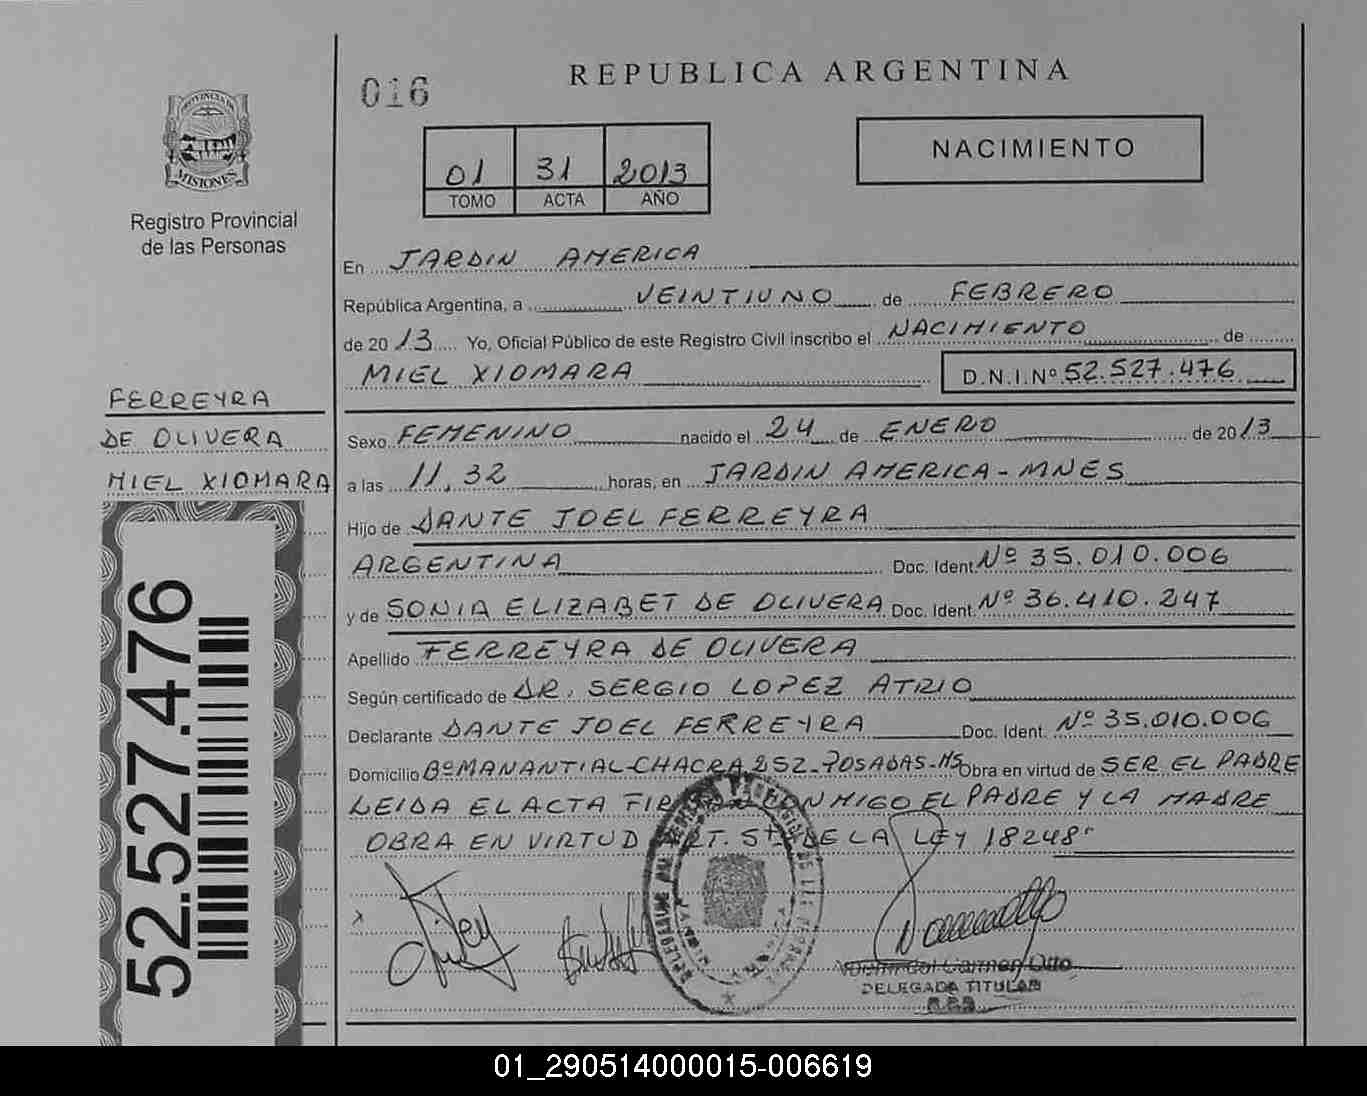 REPUBLICA ARGENTINA
016
PROVINCIA DE
MISIONES
Registro Provincial
de las Personas
01 31 2013
TOMO ACTA AÑO
NACIMIENTO
En JARDIN AMERICA
República Argentina, a VEINTIUNO de FEBRERO
de 2013 Yo, Oficial Público de este Registro Civil inscribo el NACIMIENTO de
MIEL XIOMARA D.N.I.Nº 52.527.476
FERREYRA
DE OLIVERA
MIEL XIOMARA
Sexo FEMENINO nacido el 24 de ENERO de 2013
a las 11,32 horas, en JARDIN AMERICA - MNES
Hijo de DANTE JOEL FERREYRA
ARGENTINA Doc. Ident. Nº 35.010.006
y de SONIA ELIZABET DE OLIVERA Doc. Ident. Nº 36.410.247
Apellido FERREYRA DE OLIVERA
Según certificado de DR. SERGIO LOPEZ ATRIO
Declarante DANTE JOEL FERREYRA Doc. Ident. Nº 35.010.006
Domicilio Bº MANANTIAL-CHACRA 252-POSADAS-MS Obra en virtud de SER EL PADRE
LEIDA EL ACTA EL PADRE Y LA MADRE
OBRA EN VIRTUD ART. 5to DE LA LEY 18248"
52.527.476
del Carmen Otto
DELEGADA TITULAR
01_290514000015-006619